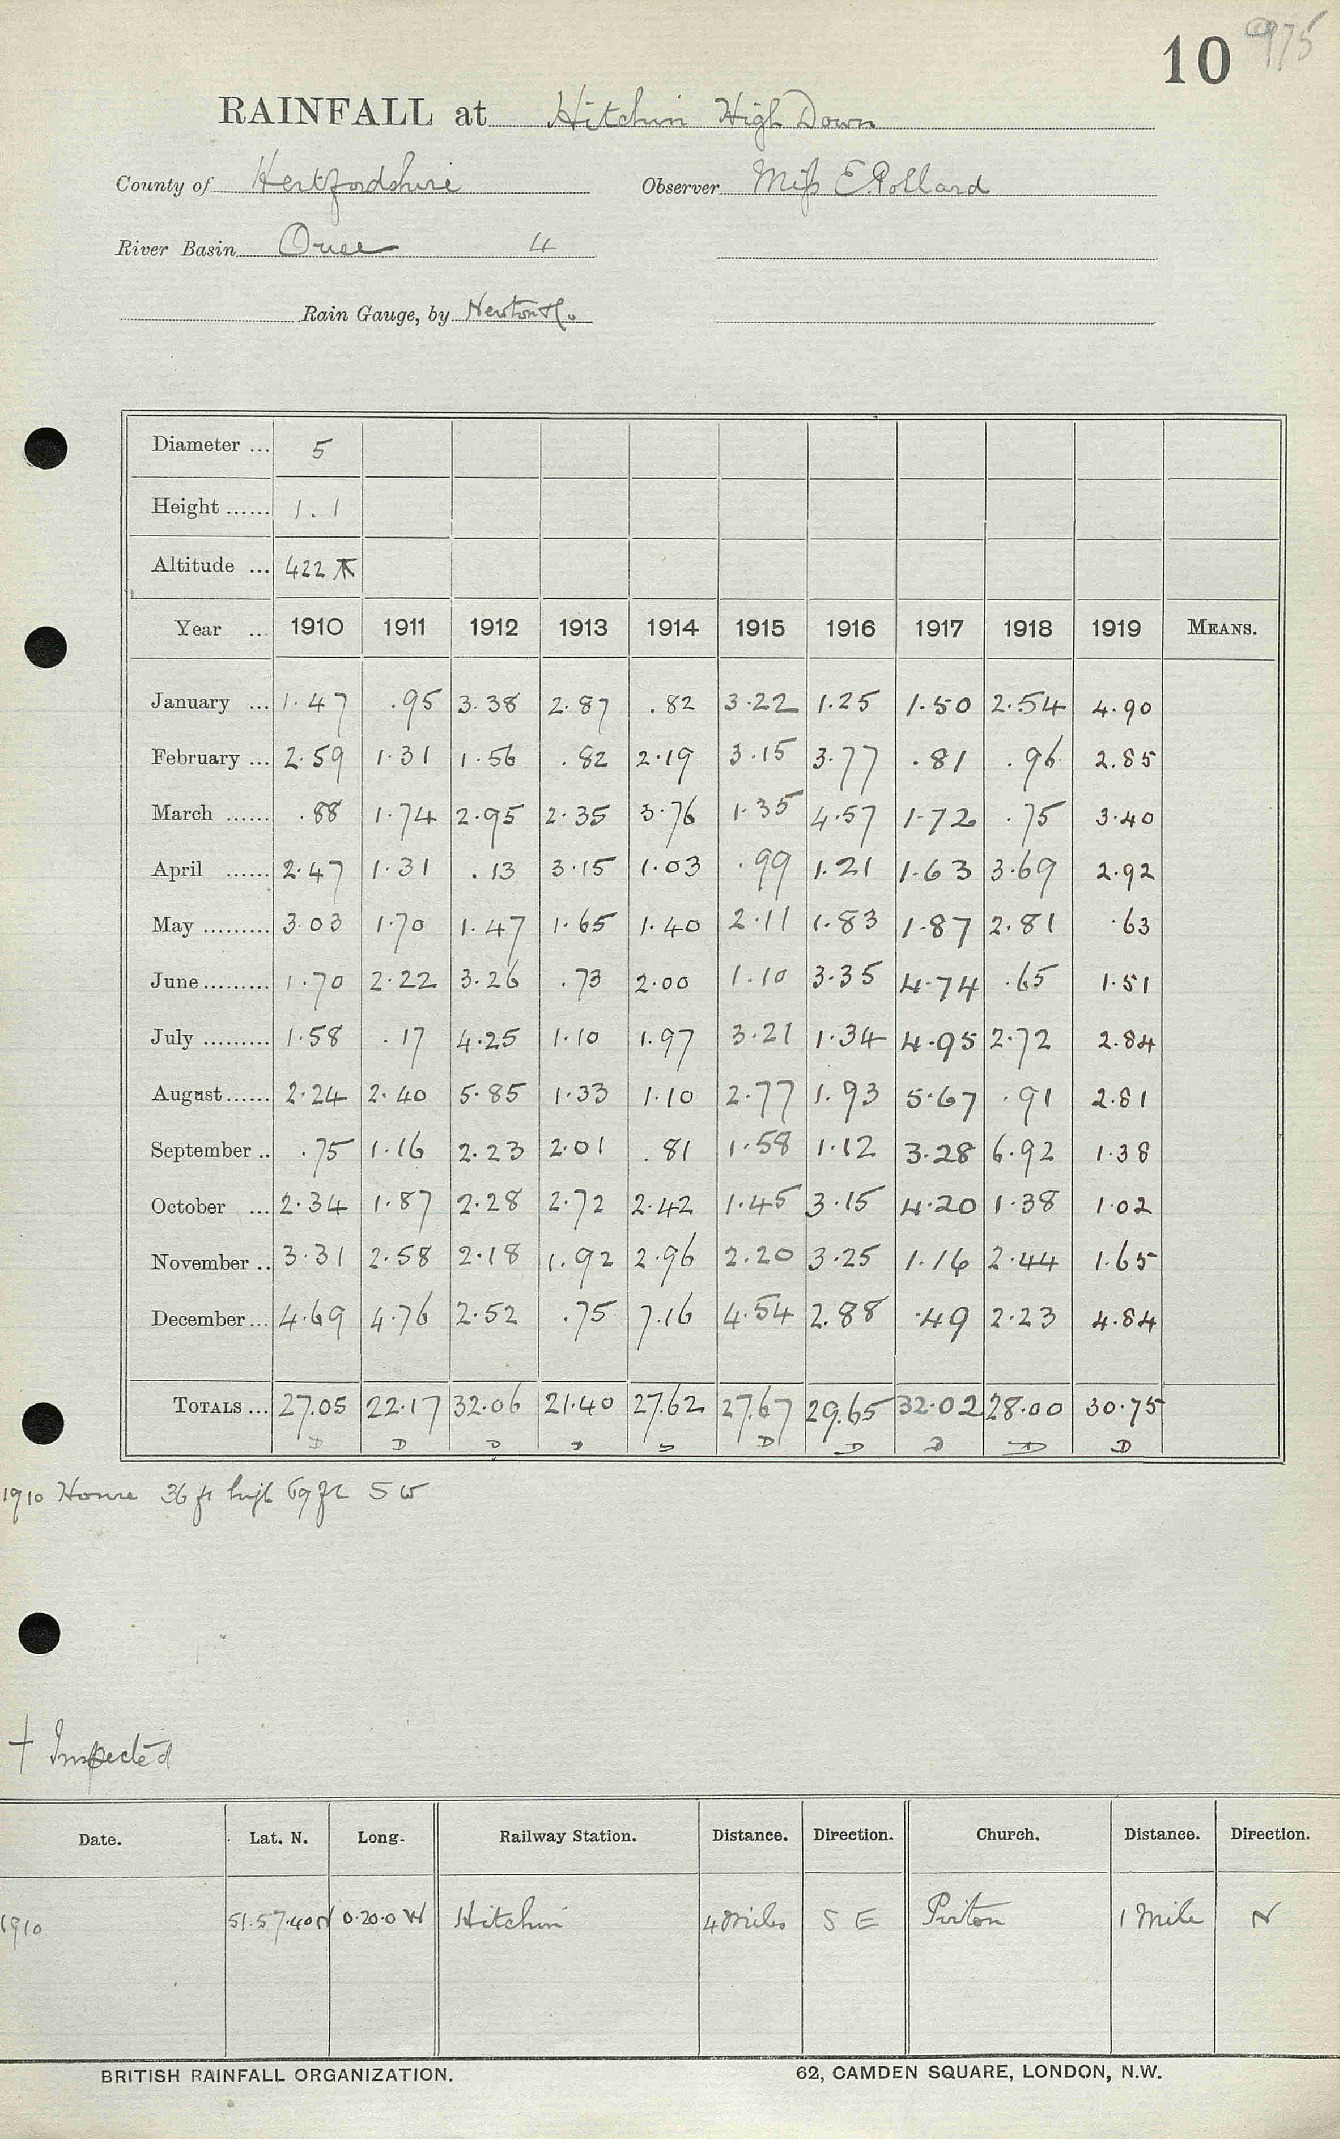 10 975
RAINFALL at Hitchin High Down
County of Hertfordshire Observer Miss E. Pollard
River Basin Ouse 4
Rain Gauge, by Newton &Co
Diameter ... 5
Height ...... 1.1
Altitude ... 422
Year ... 1910 1911 1912 1913 1914 1915 1916 1917 1918 1919 MEANS.
January ... 1.47 .95 3.38 2.87 .82 3.22 1.25 1.50 2.54 4.90
February ... 2.59 1.31 1.56 .82 2.19 3.15 3.77 .81 .96 2.85
March ...... .88 1.74 2.95 2.35 3.76 1.35 4.57 1.72 .75 3.40
April ...... 2.47 1.31 .13 3.15 1.03 .99 1.21 1.63 3.69 2.92
May ......... 3.03 1.70 1.47 1.65 1.40 2.11 1.83 1.87 2.81 .63
June ......... 1.70 2.22 3.26 .73 2.00 1.10 3.35 4.74 .65 1.51
July ......... 1.58 .17 4.25 1.10 1.97 3.21 1.34 4.95 2.72 2.84
August ...... 2.24 2.40 5.85 1.33 1.10 2.77 1.93 5.67 .91 2.81
September .. .75 1.16 2.23 2.01 .81 1.58 1.12 3.28 6.92 1.38
October ... 2.34 1.87 2.28 2.72 2.42 1.45 3.15 4.20 1.38 1.02
November .. 3.31 2.58 2.18 1.92 2.96 2.20 3.25 1.16 2.44 1.65
December ... 4.69 4.76 2.52 .75 7.16 4.54 2.88 .49 2.23 4.84
TOTALS ... 27.05 22.17 32.06 21.40 27.62 27.67 29.65 32.02 28.00 30.75
D D D D D D D D D D
1910 House 36 ft high 69 ft SW
† Inspected
Date. Lat. N. Long. Railway Station. Distance. Direction. Church. Distance. Direction.
1910 51.57.40N 0.20.0 W Hitchin 4 miles S E Pirton 1 Mile N
BRITISH RAINFALL ORGANIZATION. 62, CAMDEN SQUARE, LONDON, N.W.